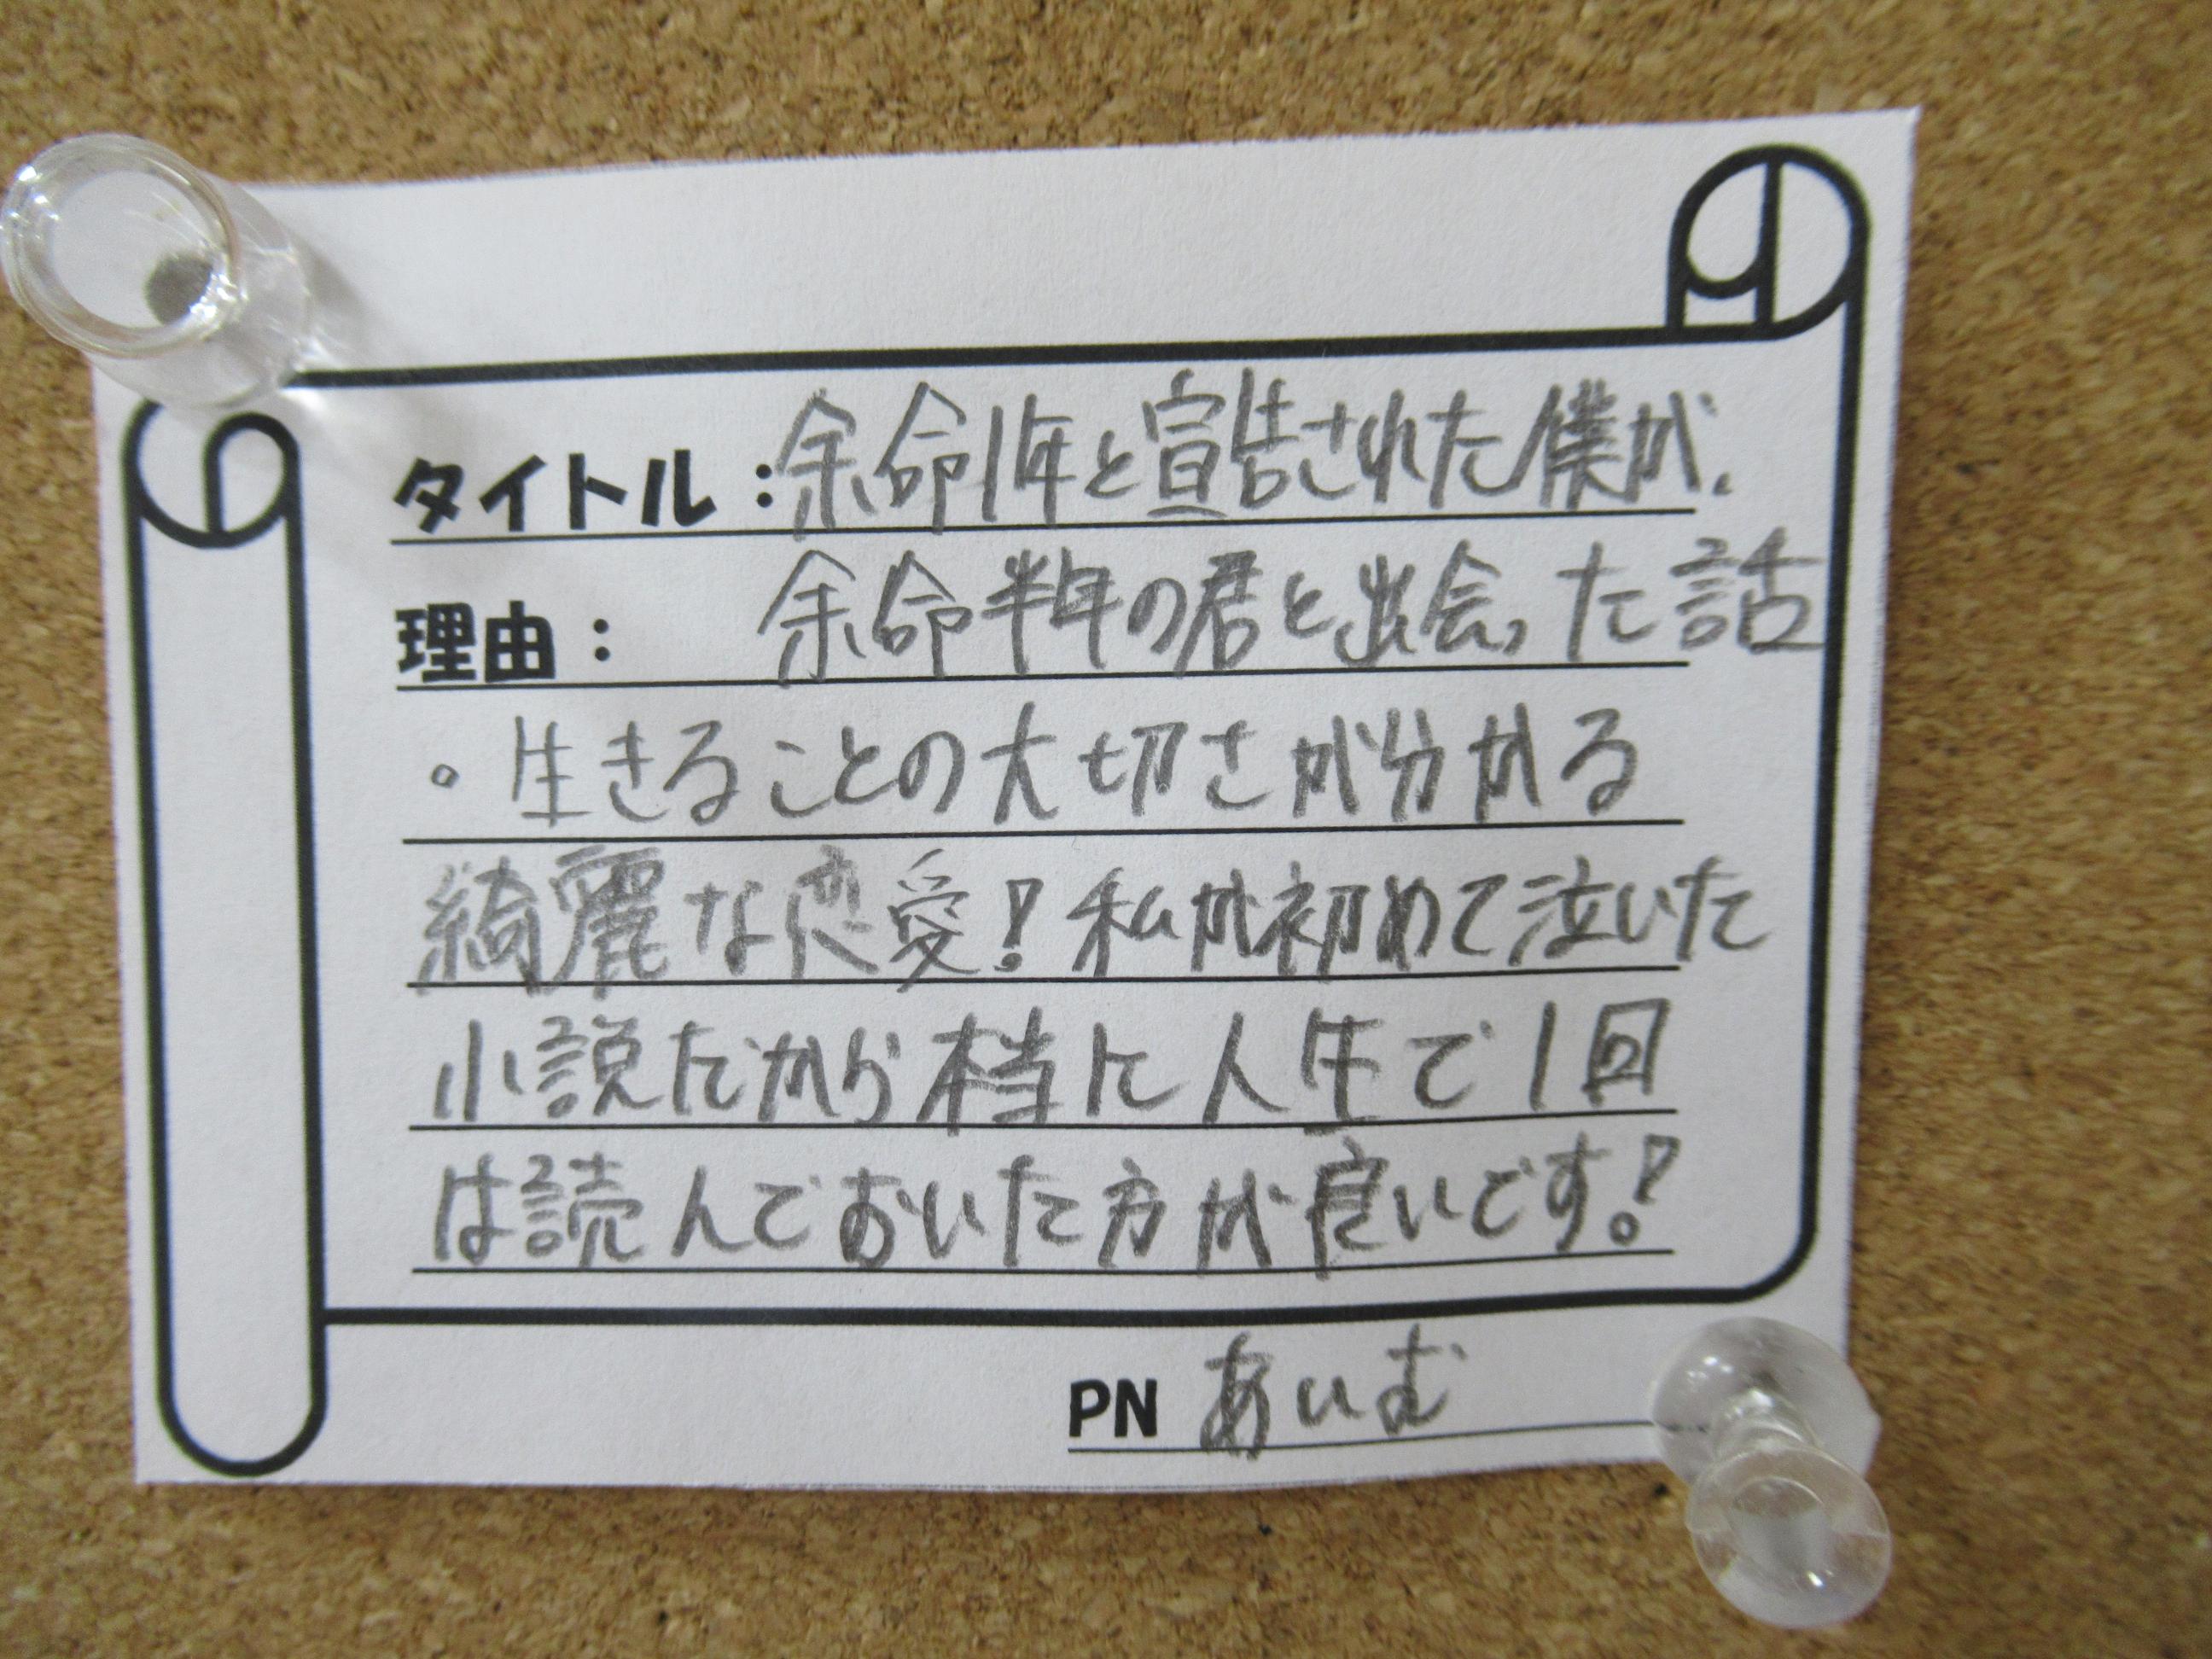 タイトル:余命1年と宣告された僕が、
理由: 余命半年の君と出会った話
。生きることの大切さが分かる
綺麗な恋愛!私が初めて泣いた
小説だから本当に人生で1回
は読んでおいた方が良いです!
PN あいむ